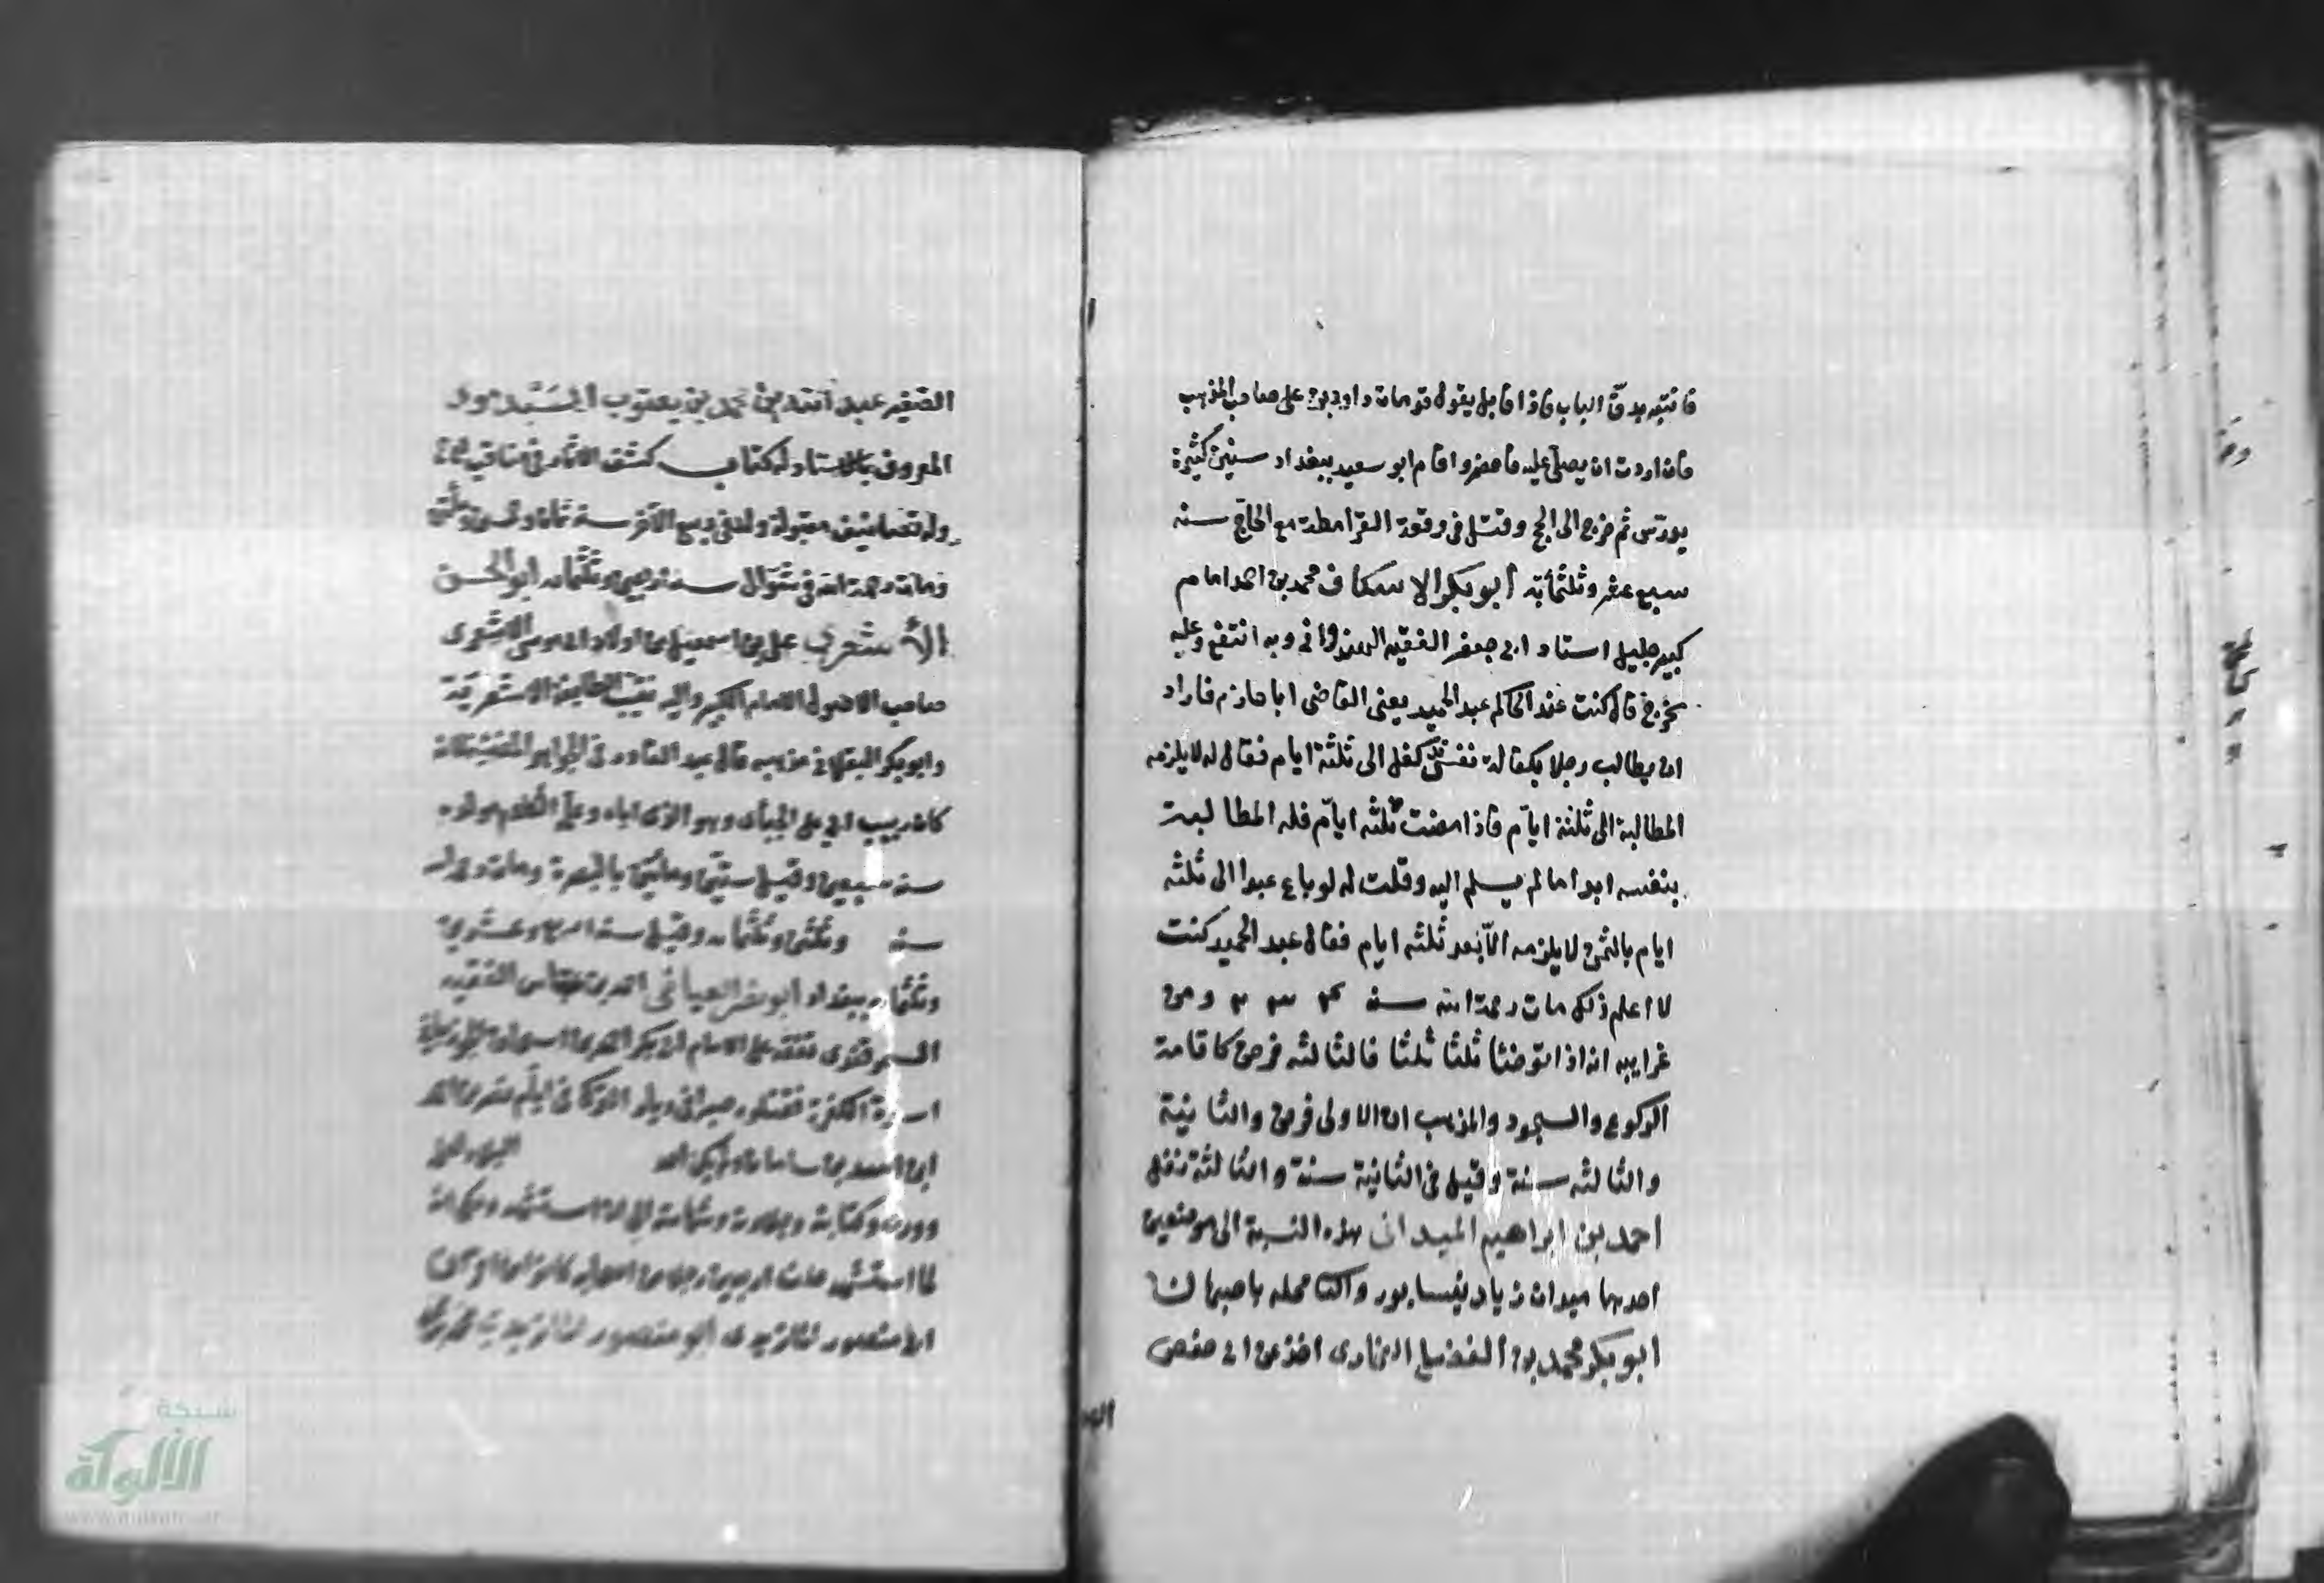 فانتبه بدقّ الباب فاذا قايل يقول قد مات داود بن على صاحب المذهب
فان اردت ان يصلى عليه فاحضر واقام ابو سعيد ببغداد سنين كثيرة
يدرّس ثم خرج الى الحج وقتل فى وقعة القرامطة مع الحاجّ سنه
سبع عشر وثلثمأية ابو بكر الاسكاف محمد بن احمد امام
كبير جليل استاد ابى جعفر الفقيه الهندوانى وبه انتفع وعليه
تخرج قال كنت عند الحاكم عبد الحميد يعنى القاضى ابا حازم فاراد
ان يطالب رجلا بكفالة نفس كفل الى ثلثة ايام فقال له لا يلزمه
المطالبة الى ثلثة ايّام فاذا مضت ثلثه ايّام فله المطالبة
بنفسه ابدا ما لم يسلم اليه وقلت له لو باع عبدا الى ثلثه
ايام بالثمن لا يلزمه الّا بعد ثلثه ايام فقال عبد الحميد كنت
لا اعلم ذلك مات رحمة الله سنه ٣٣٣ ومن
غرايبه انه اذا توضئا ثلثا ثلثا فالثالثه فرض كاقامة
الركوع والسجود والمذهب ان الاولى فرض والثانية
والثالثه سنة وقيل فى الثانية سنة والثالثة نفل
احمد بن ابراهيم الميدانى هذه النسبة الى موضعين
احدهما ميدان زياد نيسابور والثا محله باصبهان
ابو بكر محمد بن الفضل البخارى اخذ عن ابى حفص
الصغير عبد الله بن محمد بن يعقوب السبذمونى
المعروف بالاستاد له كتاب كشف الاثار فى مناقب
وله تصانيف مقبولة ولد فى ربيع الآخر سنة ثمان وخمسين ومأتين
ومات رحمة الله فى شوّال سنه اربعين وثلثمايه ابو الحسن
الأشعرى على بن اسمعيل من اولاد ابى موسى الاشعرى
صاحب الاصول الامام الكبير واليه نسبت الطايفة الاشعريّة
وابو بكر الباقلانى مذهبه قال عبد القادر فى الجواهر المضيئة
كان ربيب ابى على الجبأى وهو الذى رباه وعلّم الكلام مولده
سنه سبعين وقيل ستين ومأتين بالبصرة ومات
سنه وثلثين وثلثمايه وقيل سنه اربع وعشرين
وثلثمايه ببغداد ابو نصر العياضى احمد بن عباس الفقيه
السمرقندى تفقه على الامام ابى بكر احمد
اسره الكفرة فقتلوه صبرا فى ديار الترك فى ايام نصر بن احمد
ابن اسد بن سامان ولم يكن احد
وورعه وكتابته وجلادته وشهامته الى ان استشهد وحكى انه
لما استشهد خلف اربعين رجلا من اصحابه كانوا من اقران
ابى منصور الماتريدى ابو منصور الماتريدى